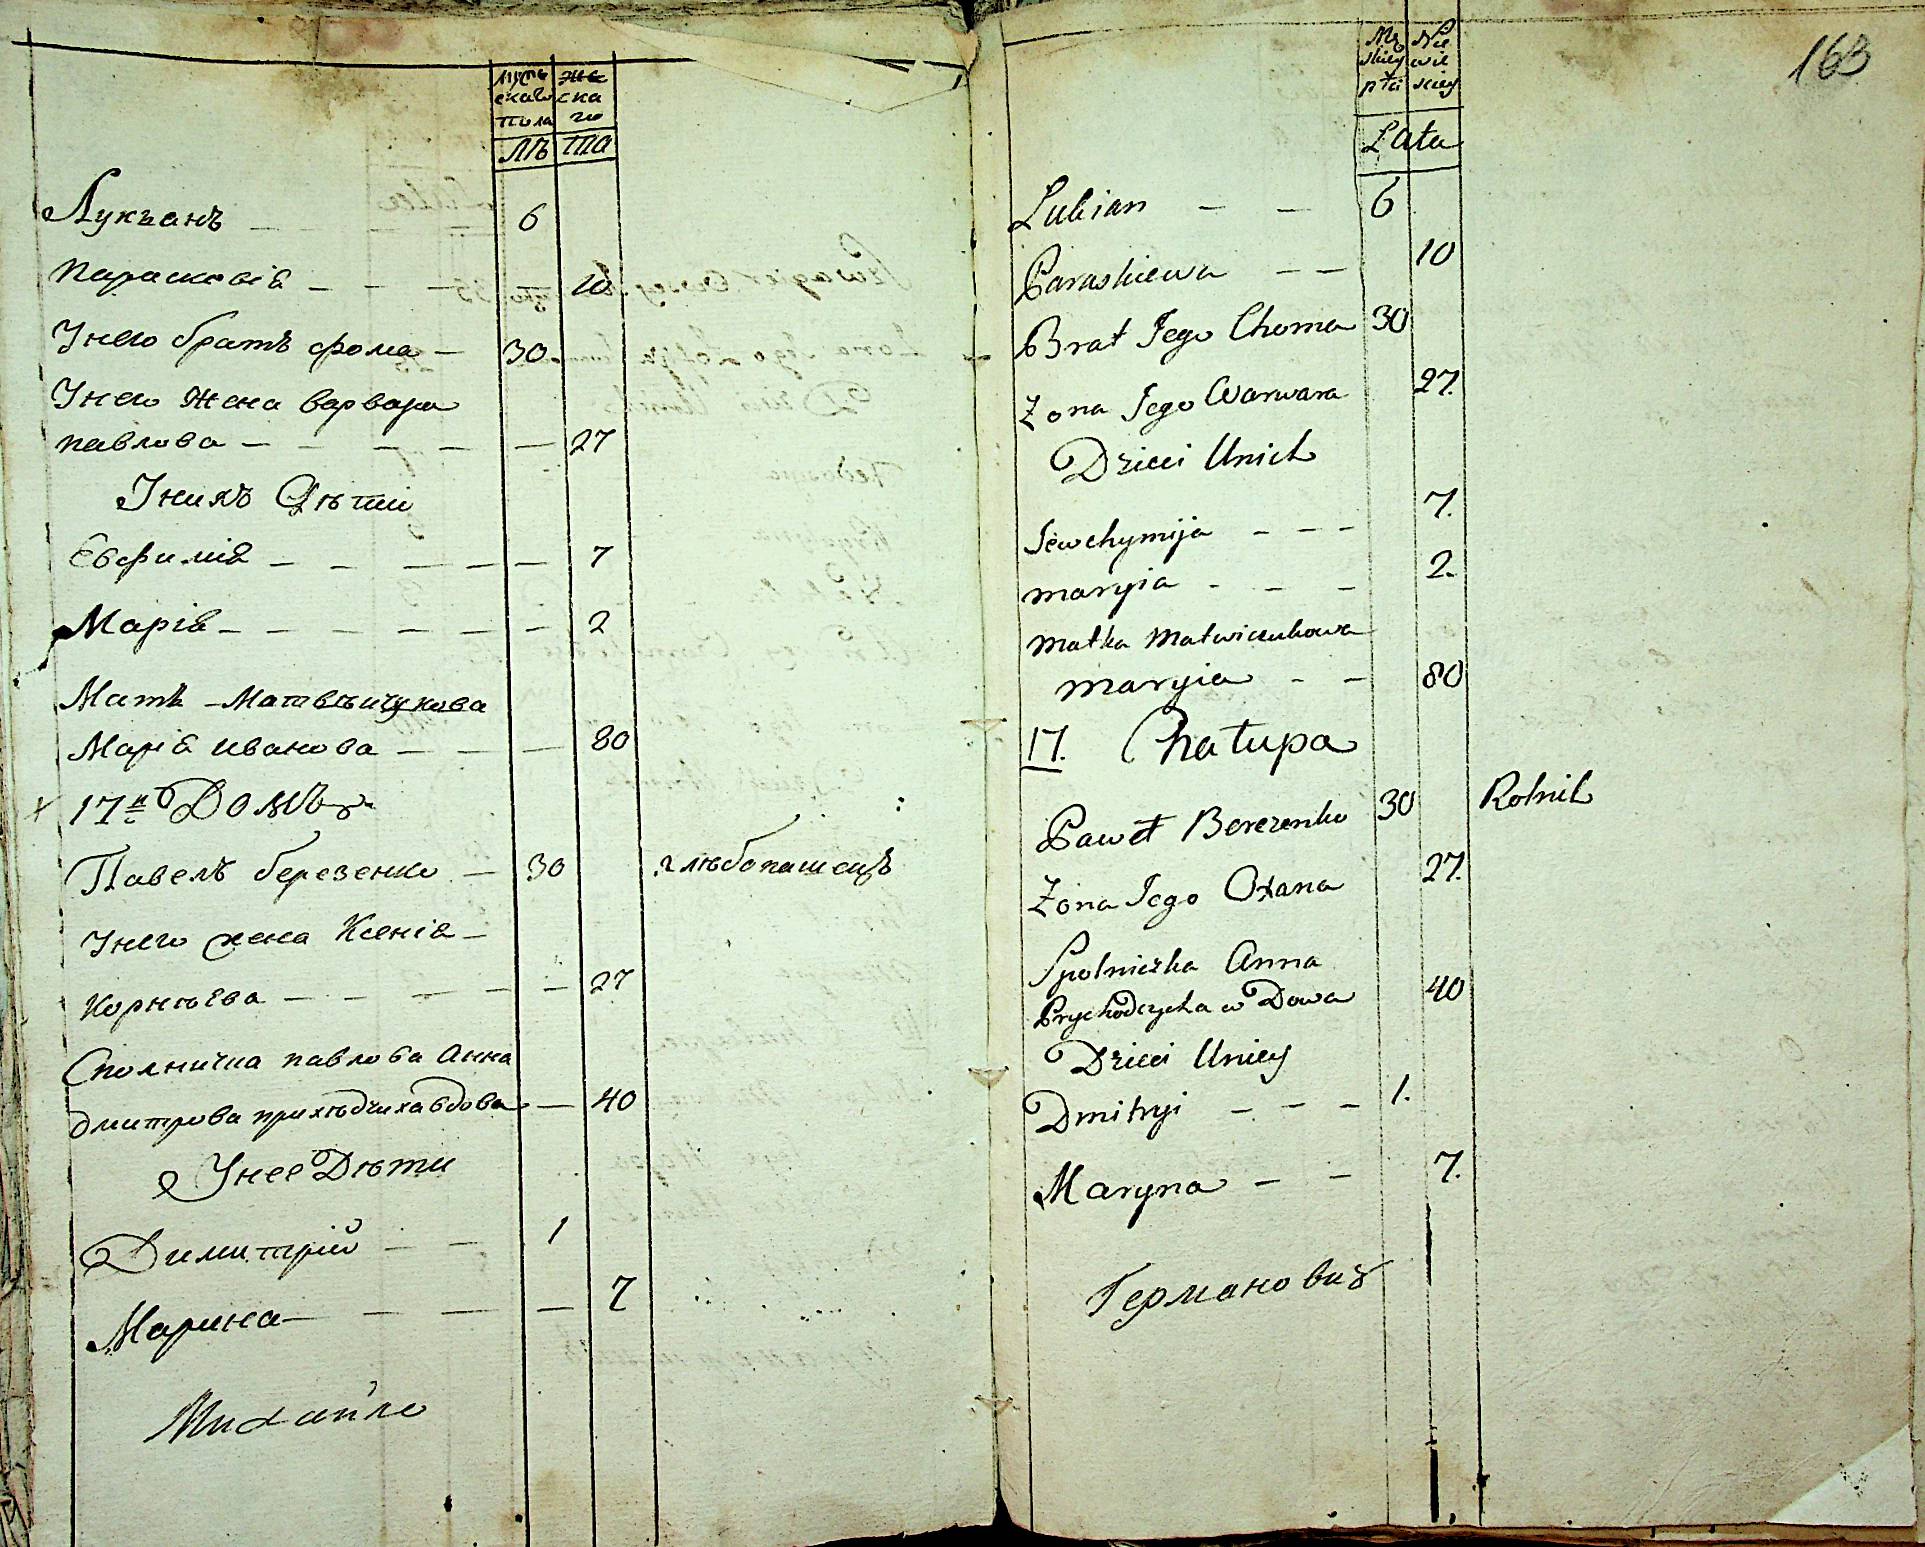 мужъ
скаго
пола
же
ска
го
лѣ та
Лукъанъ — — — 6
Параскевія — — — — 10
Унего братъ фома — 30
Унего Жена варвара
павлова — — — — — 27
Унихъ Дѣти
Евфимія — — — — — 7
Марія — — — — — — 2
Мать Матвѣичукова
Марія иванова — — — 80
17й Домъ
Павелъ березенко — 30 хлѣбопашецъ
Унего жена Ксенія —
Корнѣева — — — — — 27
Сполничка павлова Анна
дмитрова приходчиха вдова — 40
Унее Дѣти
Димитрій — — 1
Марина — — — — 7
Михайло
163
Mę
skiey
płci
Nie
wie
sciey
Lata
Lukian — — 6
Paraskiewa — — 10
Brat Jego Choma 30
Zona Jego Warwara 27.
Dzieci Unich
Jewchymija — — — 7.
maryia — — — 2.
matka Matwieiukowa
maryia — — 80
17. Chałupa
Paweł Berezenko 30 Rolnik
Zona Jego Oxana 27.
Spolniczka Anna
Prychodzycha w Dowa 40
Dzieci Uniey
Dmitryi — — — 1.
Maryna — — 7.
Германович